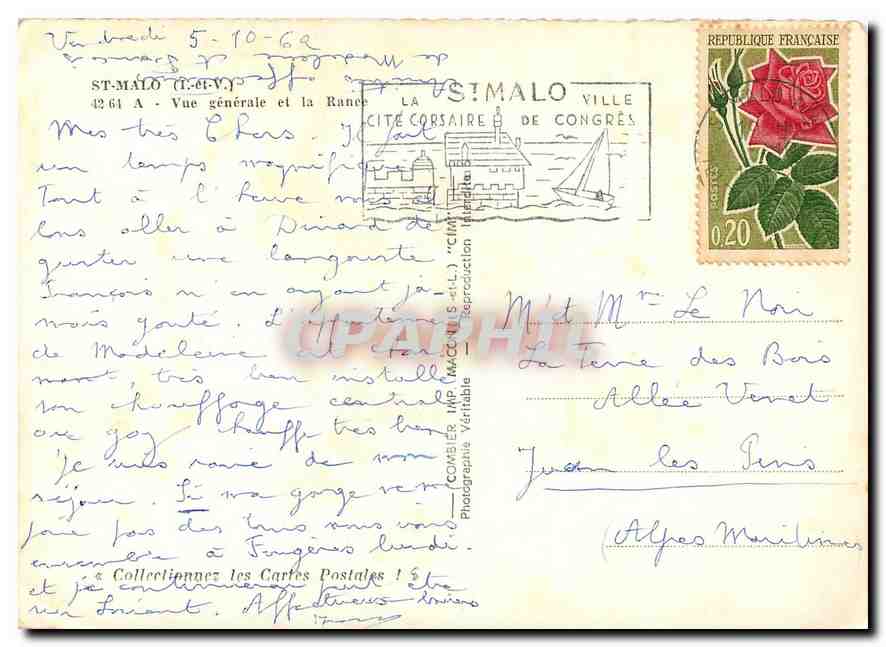 Vendredi 5-10-62
de Madeleine et
Amitiés affectueuses
ST-MALO (I.-et-V.)
42 64 A - Vue générale et la Rance
LA ST MALO VILLE
CITÉ CORSAIRE DE CONGRÈS
RÉPUBLIQUE FRANÇAISE
POSTES
0,20
Mes très Chers. Il fait
un temps magnifique
Tout à l'heure nous al
lons aller à Dinard dé
guster une langouste
François n'en ayant ja-
mais gouté. L'appartement
de Madeleine est char
mant, très bien installé
son chauffage central
au gaz chauffe très bien
Je suis ravie de mon
séjour. Si ma gorge ne me
joue pas des tours nous irons
ensemble à Fougères lundi.
et je continuerai peut être
sur Lorient. Affectueux baisers
« Collectionnez les Cartes Postales ! »
COMBIER IMP. MACON (S.-et-L.) "CIM"
Photographie Véritable - Reproduction Interdite
CPAPHIL
Mr et Mme Le Noir
La Terre des Bois
Allée Venet
Juan les Pins
(Alpes Maritimes